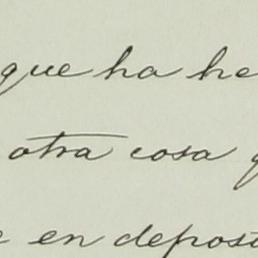 que ha he
otra cosa
en deposi